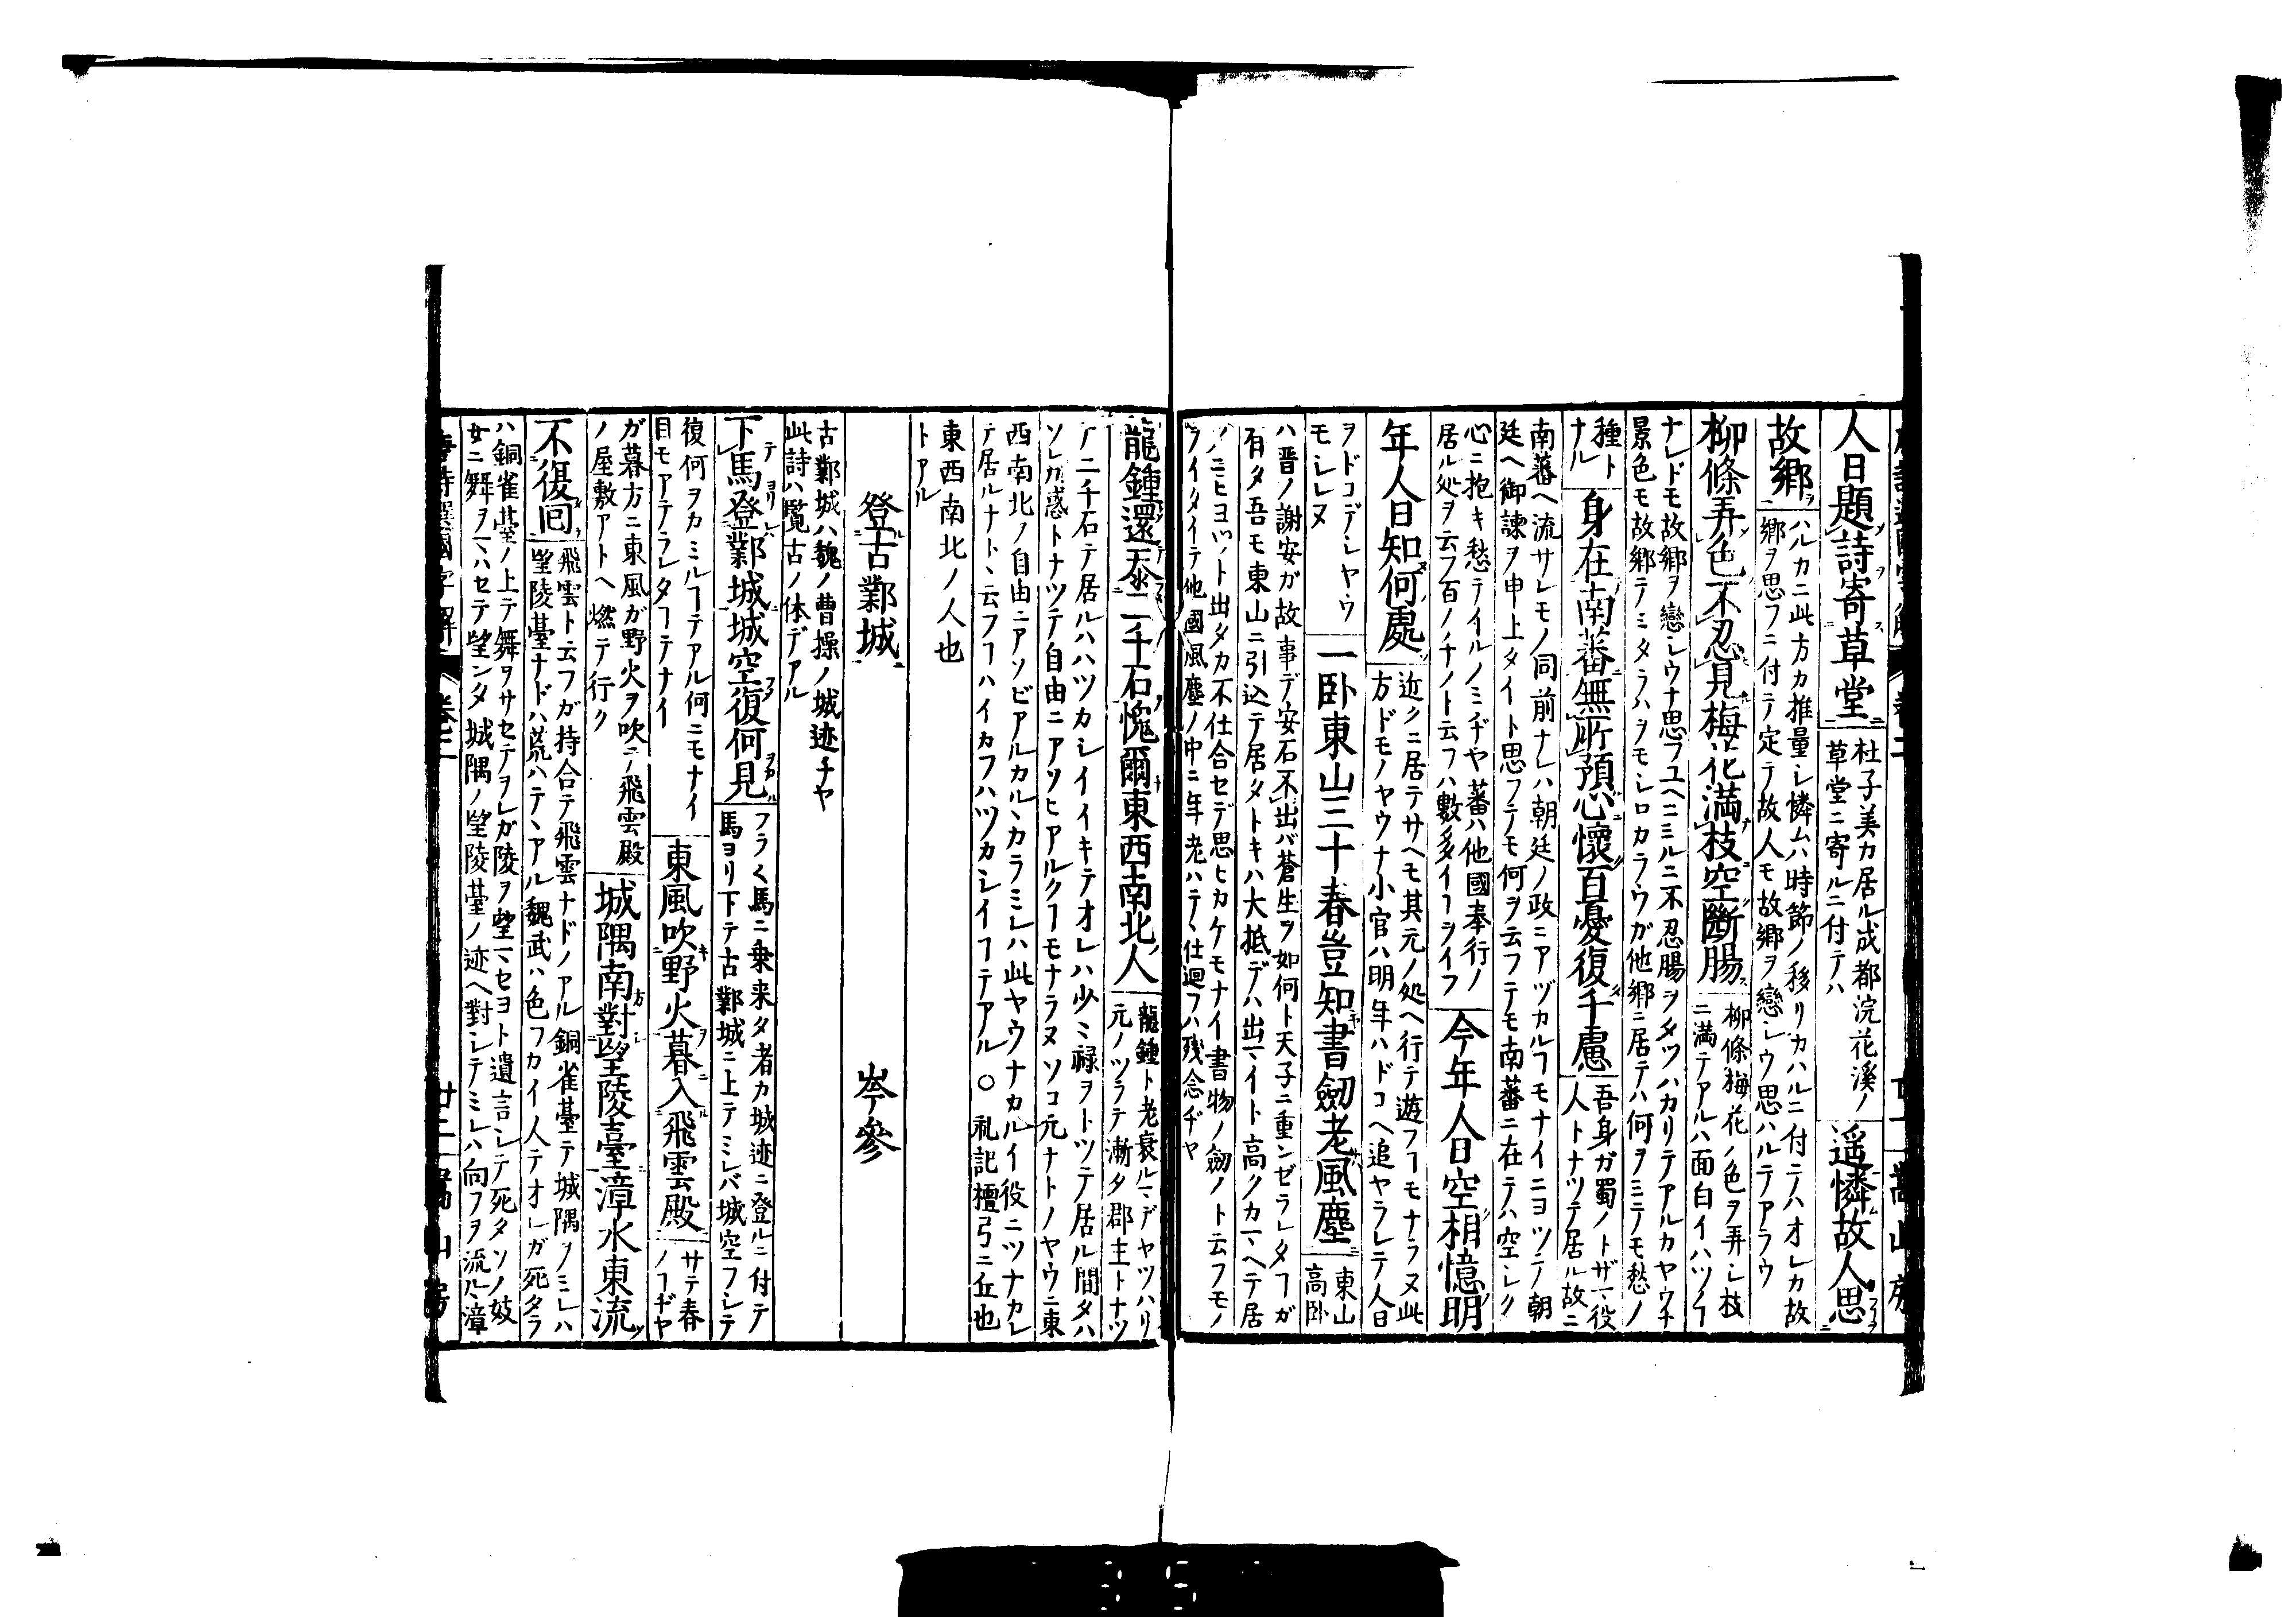 人日題詩寄草堂
杜子美カ居ル成都浣花溪ノ
草堂ニ寄ルニ付テハ
遥憐故人思
故郷
ハルカニ此方カ推量シ憐ムハ時節ノ移リカハルニ付テハオレカ故
郷ヲ思フニ付テ定テ故人モ故郷ヲ戀シウ思ハルテアラウ
柳條弄色不忍見梅花満枝空斷腸
柳條梅花ノ色ヲ弄シ枝
ニ満テアルハ面白イハヅノ
ナレドモ故郷ヲ戀シウナ思フユヘニミルニ不忍腸ヲタツハカリテアルカヤウナ
景色モ故郷テミタラハヲモシロカラウガ他郷ニ居テハ何ヲミテモ愁ノ
種ト
ナル
身在南蕃無所預心懷百憂復千慮
吾身ガ蜀ノトザマ役
人トナツテ居ル故ニ
南蕃ヘ流サレモノ同前ナレハ朝廷ノ政ニアヅカルヿモナイニヨツテノ朝
廷ヘ御諫ヲ申上タイト思フテモ何ヲ云フテモ南蕃ニ在テハ空シク
心ニ抱キ愁テイルノミヂヤ蕃ハ他國奉行ノ
居ル処ヲ云フ百ノチノト云フハ數多イヿヲイフ
今年人日空相憶明
年人日知何處
近クニ居テサヘモ其元ノ処ヘ行テ遊フヿモナラヌ此
方ドモノヤウナ小官ハ明年ハドコヘ追ヤラレテ人日
ヲドコデシヤウ
モシレヌ
一卧東山三十春豈知書劒老風塵
東山
高卧
ハ晋ノ謝安ガ故事デ安石不出バ蒼生ヲ如何ト天子ニ重ンゼラレタヿガ
有タ吾モ東山ニ引込テ居タトキハ大抵デハ出マイト高クカマヘテ居
ノニヒヨツト出タカ不仕合セデ思ヒカケモナイ書物ノ劒ノト云フモノ
ライタイテ他國風塵ノ中ニ年老ハテヽ仕廻フハ残念ヂヤ
龍鍾還忝二千石愧爾東西南北人
龍鍾ト老衰ルマデヤツハリ
元ノツラテ漸タ郡主トナツ
テ二千石テ居ルハハツカシイイキテオレハ少ミ禄ヲトツテ居ル間タハ
ソレカ惑トナツテ自由ニアソヒアルクヿモナラヌソコ元ナトノヤウニ東
西南北ノ自由ニアソビアルカルヽカラミレハ此ヤウナカルイ役ニツナカレ
テ居ルナトヽ云フハイカフハツカシイヿテアル○礼記檀弓ニ丘也
東西南北ノ人也
トアル
登古鄴城
岑參
古鄴城ハ魏ノ曹操ノ城迹チヤ
此詩ハ覧古ノ体デアル
下馬登鄴城城空復何見
フラく馬ニ乗来タ者カ城迹ニ登ルニ付テ
馬ヨリ下テ古鄴城ニ上テミレバ城空フシテ
復何ヲカミルヿテアル何ニモナイ
目モアテラレタヿテナイ
東風吹野火暮入飛雲殿
サテ春
ノヿヂヤ
ガ暮方ニ東風ガ野火ヲ吹テ飛雲殿
ノ屋敷アトヘ燃テ行ク
城隅南對望陵臺漳水東流
不復回
飛雲ト云フガ持合テ飛雲ナドノアル銅雀臺テ城隅ヲミレハ
望陵臺ナドハ荒ハテヽアル魏武ハ色フカイ人テオレガ死タラ
ハ銅雀臺ノ上テ舞ヲサセテヲレガ陵ヲ望マセヨト遺言シテ死タソノ妓
女ニ舞ヲマハセテ望ンタ城隅ノ望陵臺ノ迹ヘ對シテミレハ向フヲ流ルヽ漳
唐詩選國字解
卷二
廿二
嵩山房